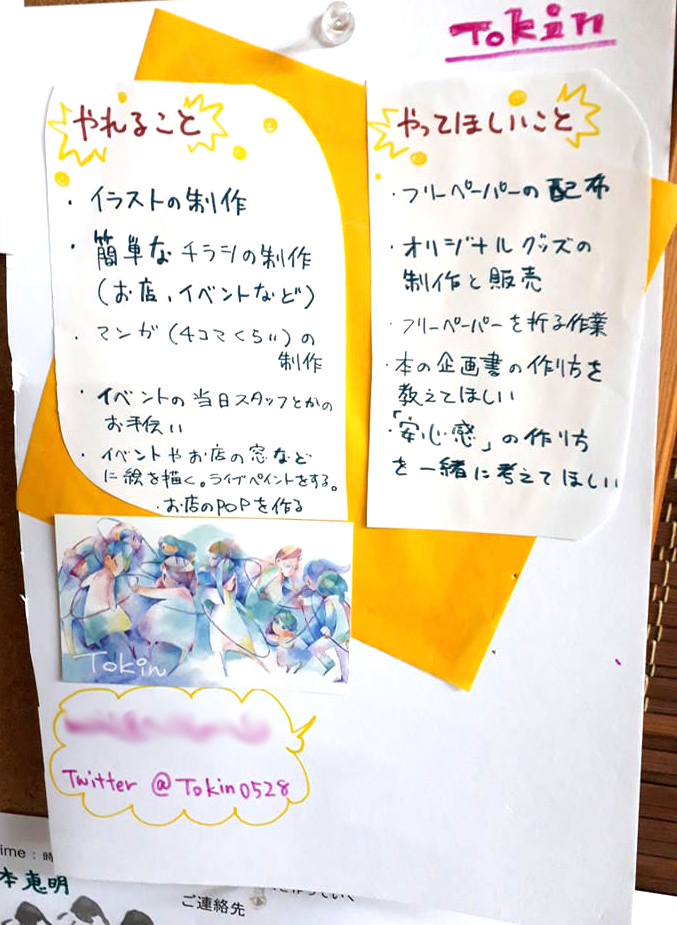 Tokin
やれること
・イラストの制作
・簡単なチラシの制作
(お店、イベントなど)
・マンガ(4コマくらい)の
制作
・イベントの当日スタッフとかの
お手伝い
・イベントやお店の窓など
に絵を描く。ライブペイントをする。
・お店のPOPを作る
やってほしいこと
・フリーペーパーの配布
・オリジナルグッズの
制作と販売
・フリーペーパーを折る作業
・本の企画書の作り方を
教えてほしい
・「安心感」の作り方
を一緒に考えてほしい
Tokin
Twitter @Tokin0528
ime：時
本恵明
ご連絡先